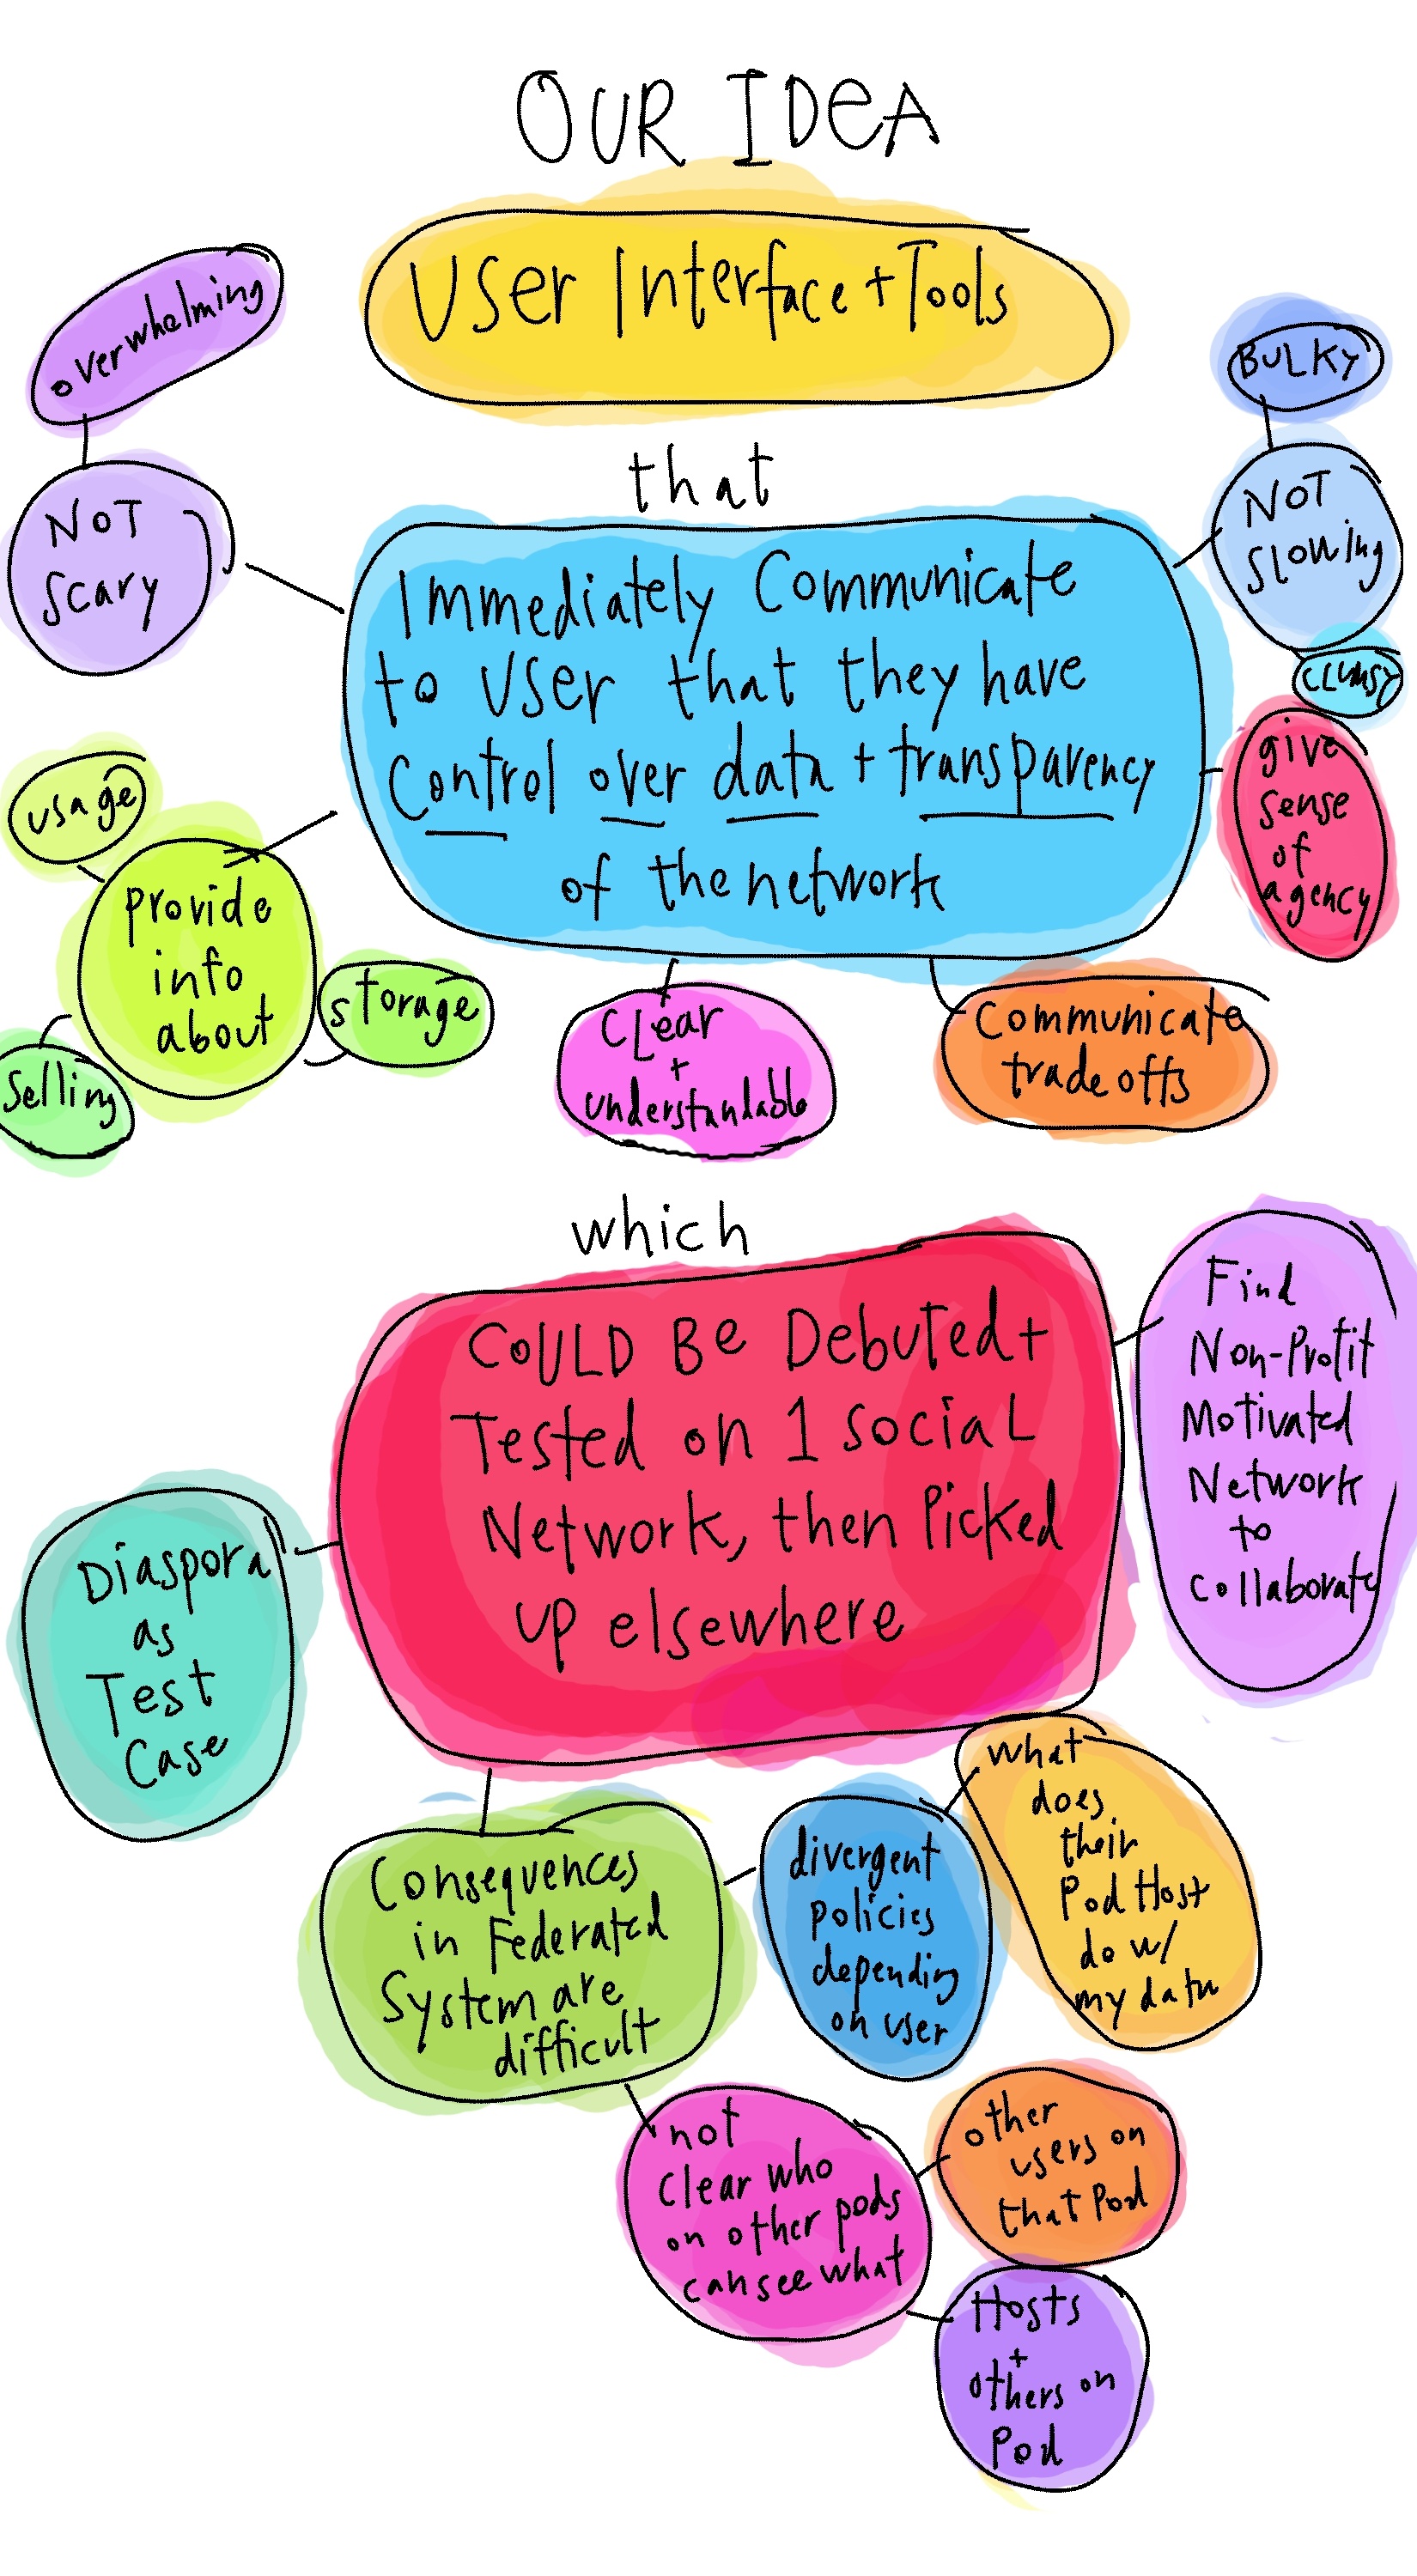 OUR IDEA
User Interface + Tools
overwhelming
NOT
scary
that
BULKY
NOT
slowing
CLUMSY
Immediately Communicate
to user that they have
control over data + transparency
of the network
give
sense
of
agency
usage
provide
info
about
storage
selling
Clear
+
understandable
Communicate
trade offs
which
COULD Be Debuted +
Tested on 1 social
Network, then Picked
up elsewhere
Find
Non-Profit
Motivated
Network
to
collaborate
Diaspora
as
Test
Case
Consequences
in Federated
System are
difficult
divergent
policies
depending
on user
what
does
their
Pod Host
do w/
my data
not
clear who
on other pods
can see what
other
users on
that Pod
Hosts
+
others on
Pod